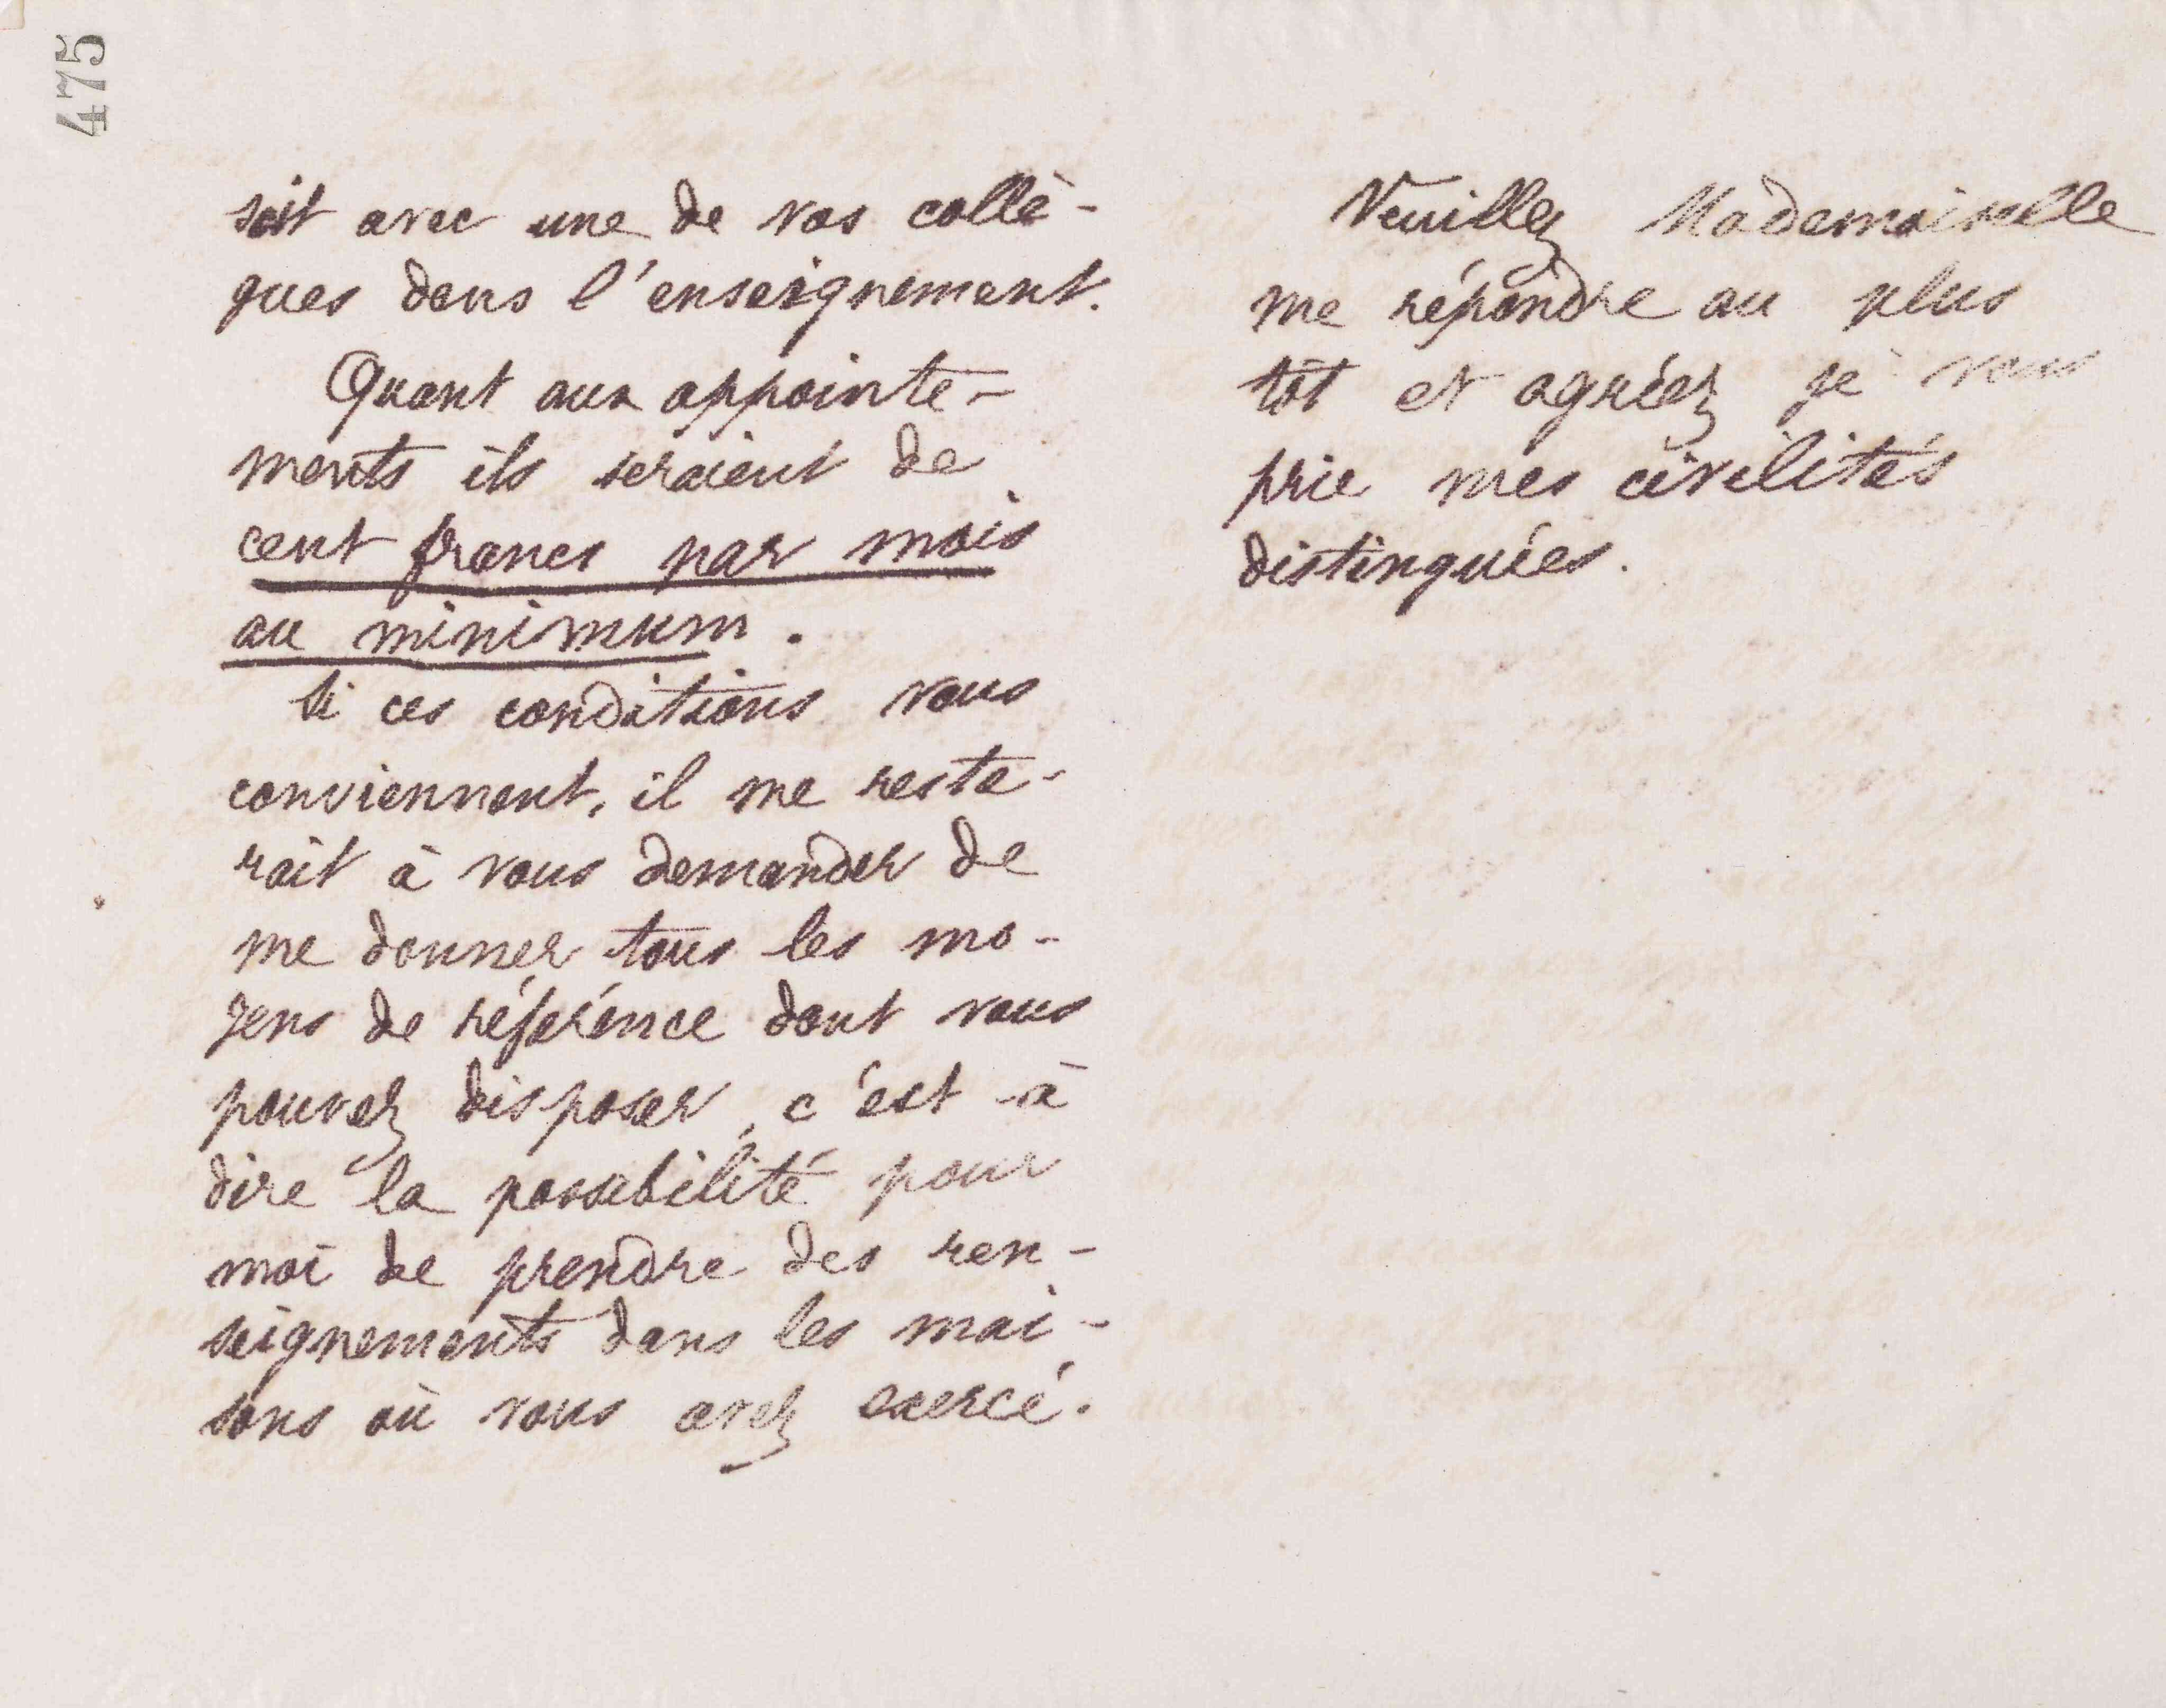 475
soit avec une de vos collè-
gues dans l'enseignement.
Quant aux appointe-
ments ils seraient de
cent francs par mois
au minimum.
Si ces conditions vous
conviennent, il me reste-
rait à vous demander de
me donner tous les mo-
yens de référence dont vous
pouvez disposer, c'est-à
dire la possibilité pour
moi de prendre des ren-
seignements dans les mai-
sons où vous avez exercé.
Veuillez Mademoiselle
me répondre au plus
tôt et agréez je vous
prie mes civilités
distinguées.